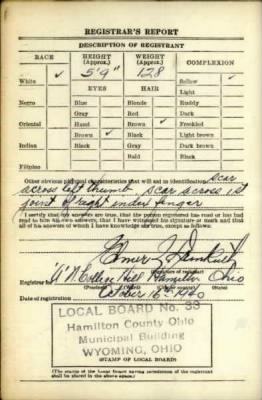 REGISTRAR'S REPORT
DESCRIPTION OF REGISTRANT
RACE HEIGHT (Approx.) WEIGHT (Approx.) COMPLEXION
5' 9" 128
White ✓ Sallow ✓
EYES HAIR Light
Negro Blue Blonde Ruddy
Gray Red Dark
Oriental Hazel Brown ✓ Freckled
Brown ✓ Black Light brown
Indian Black Gray Dark brown
Bald Black
Filipino
Other obvious physical characteristics that will aid in identification scar
across left thumb scar across 1st
joint of right index finger
I certify that my answers are true; that the person registered has read or has had
read to him his own answers; that I have witnessed his signature or mark and that
all of his answers of which I have knowledge are true, except as follows:
Elmer
(Signature of registrar)
Registrar for College Hill Hamilton Ohio
(Precinct) (Ward) (City or county) (State)
Date of registration October 16 - 1940
LOCAL BOARD No. 33
Hamilton County Ohio
Municipal Building
WYOMING, OHIO
(STAMP OF LOCAL BOARD)
(The stamp of the Local Board having jurisdiction of the registrant
shall be placed in the above space.)